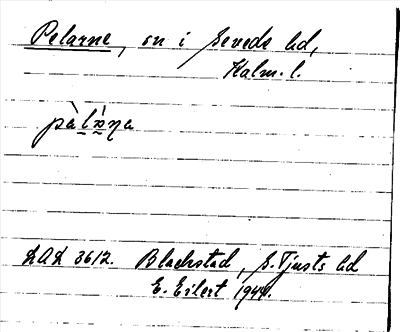 Pelarne, sn i Sevede hd,
Kalm. l.
pàlàṇa
LAL 3612. Blackstad, S. Tjusts hd
E. Eilert 1944.